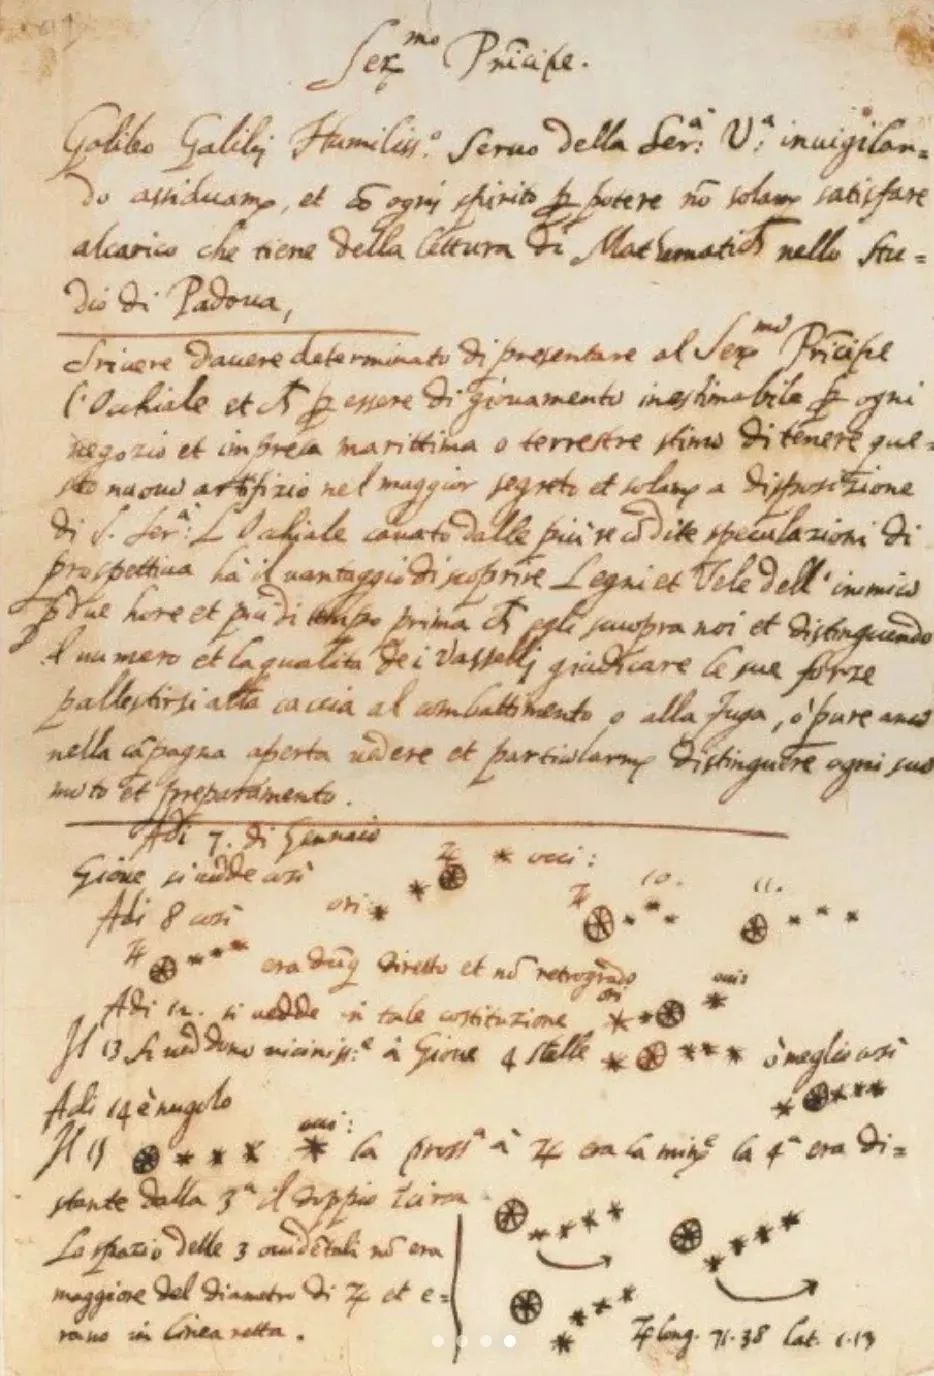 Ser.mo Prīcipe.
Galileo Galilej Humiliss.o Seruo della Ser:a V:a inuigilan=
do assiduam.e, et cō ogni spirito p potere nō solam.e satisfare
alcarico che tiene della lettura di Mathematich nello Stu=
dio di Padoua,
Scriuere dauere determinato di presentare al Ser.mo Prīcipe
l'Ochiale et ch p essere di giouamento inestimabile p ogni
negozio et impresa marittima o terrestre stimo di tenere que=
sto nuouo artifizio nel maggior segreto et solam.e a dispositione
di S. Ser:a L Ochiale cauato dalle piu recōdite speculazioni di
prospettiua ha il vantaggio di scoprire Legni et Vele dell' inimico
p due hore et piu di tempo prima ch egli scuopra noi et distinguendo
il numero et la qualita dei Vasselli giudicare le sue forze
pallestirsi alla caccia al combattimento o alla fuga, o pure anco
nella cāpagna aperta uedere et particularm.e distinguere ogni suo
moto et preparamento.
Adi 7. di Gennaio
Gioue si uedde cosi ♃ * * occi:
Adi 8 cosi ori * ♃ 10. 11.
♃ era dūq diretto et nō retrogrado
Adi 12. si uedde in tale costituzione ori * * occi *
Il 13 si ueddono uiciniss:e à Gioue 4 stelle * * * * ò meglio cosi
Adi 14 è nugolo * * * *
Il 15 * * * occi: * la pross.a à ♃ era la min.e la 4.a era di=
stante dalla 3.a il doppio ī circa
Lo spazio delle 3 ouidētali nō era * * * * * * * *
maggiore del diametro di ♃ et e=
rano in linea retta. * * * * ♃ long. 71.38 lat. 1.13